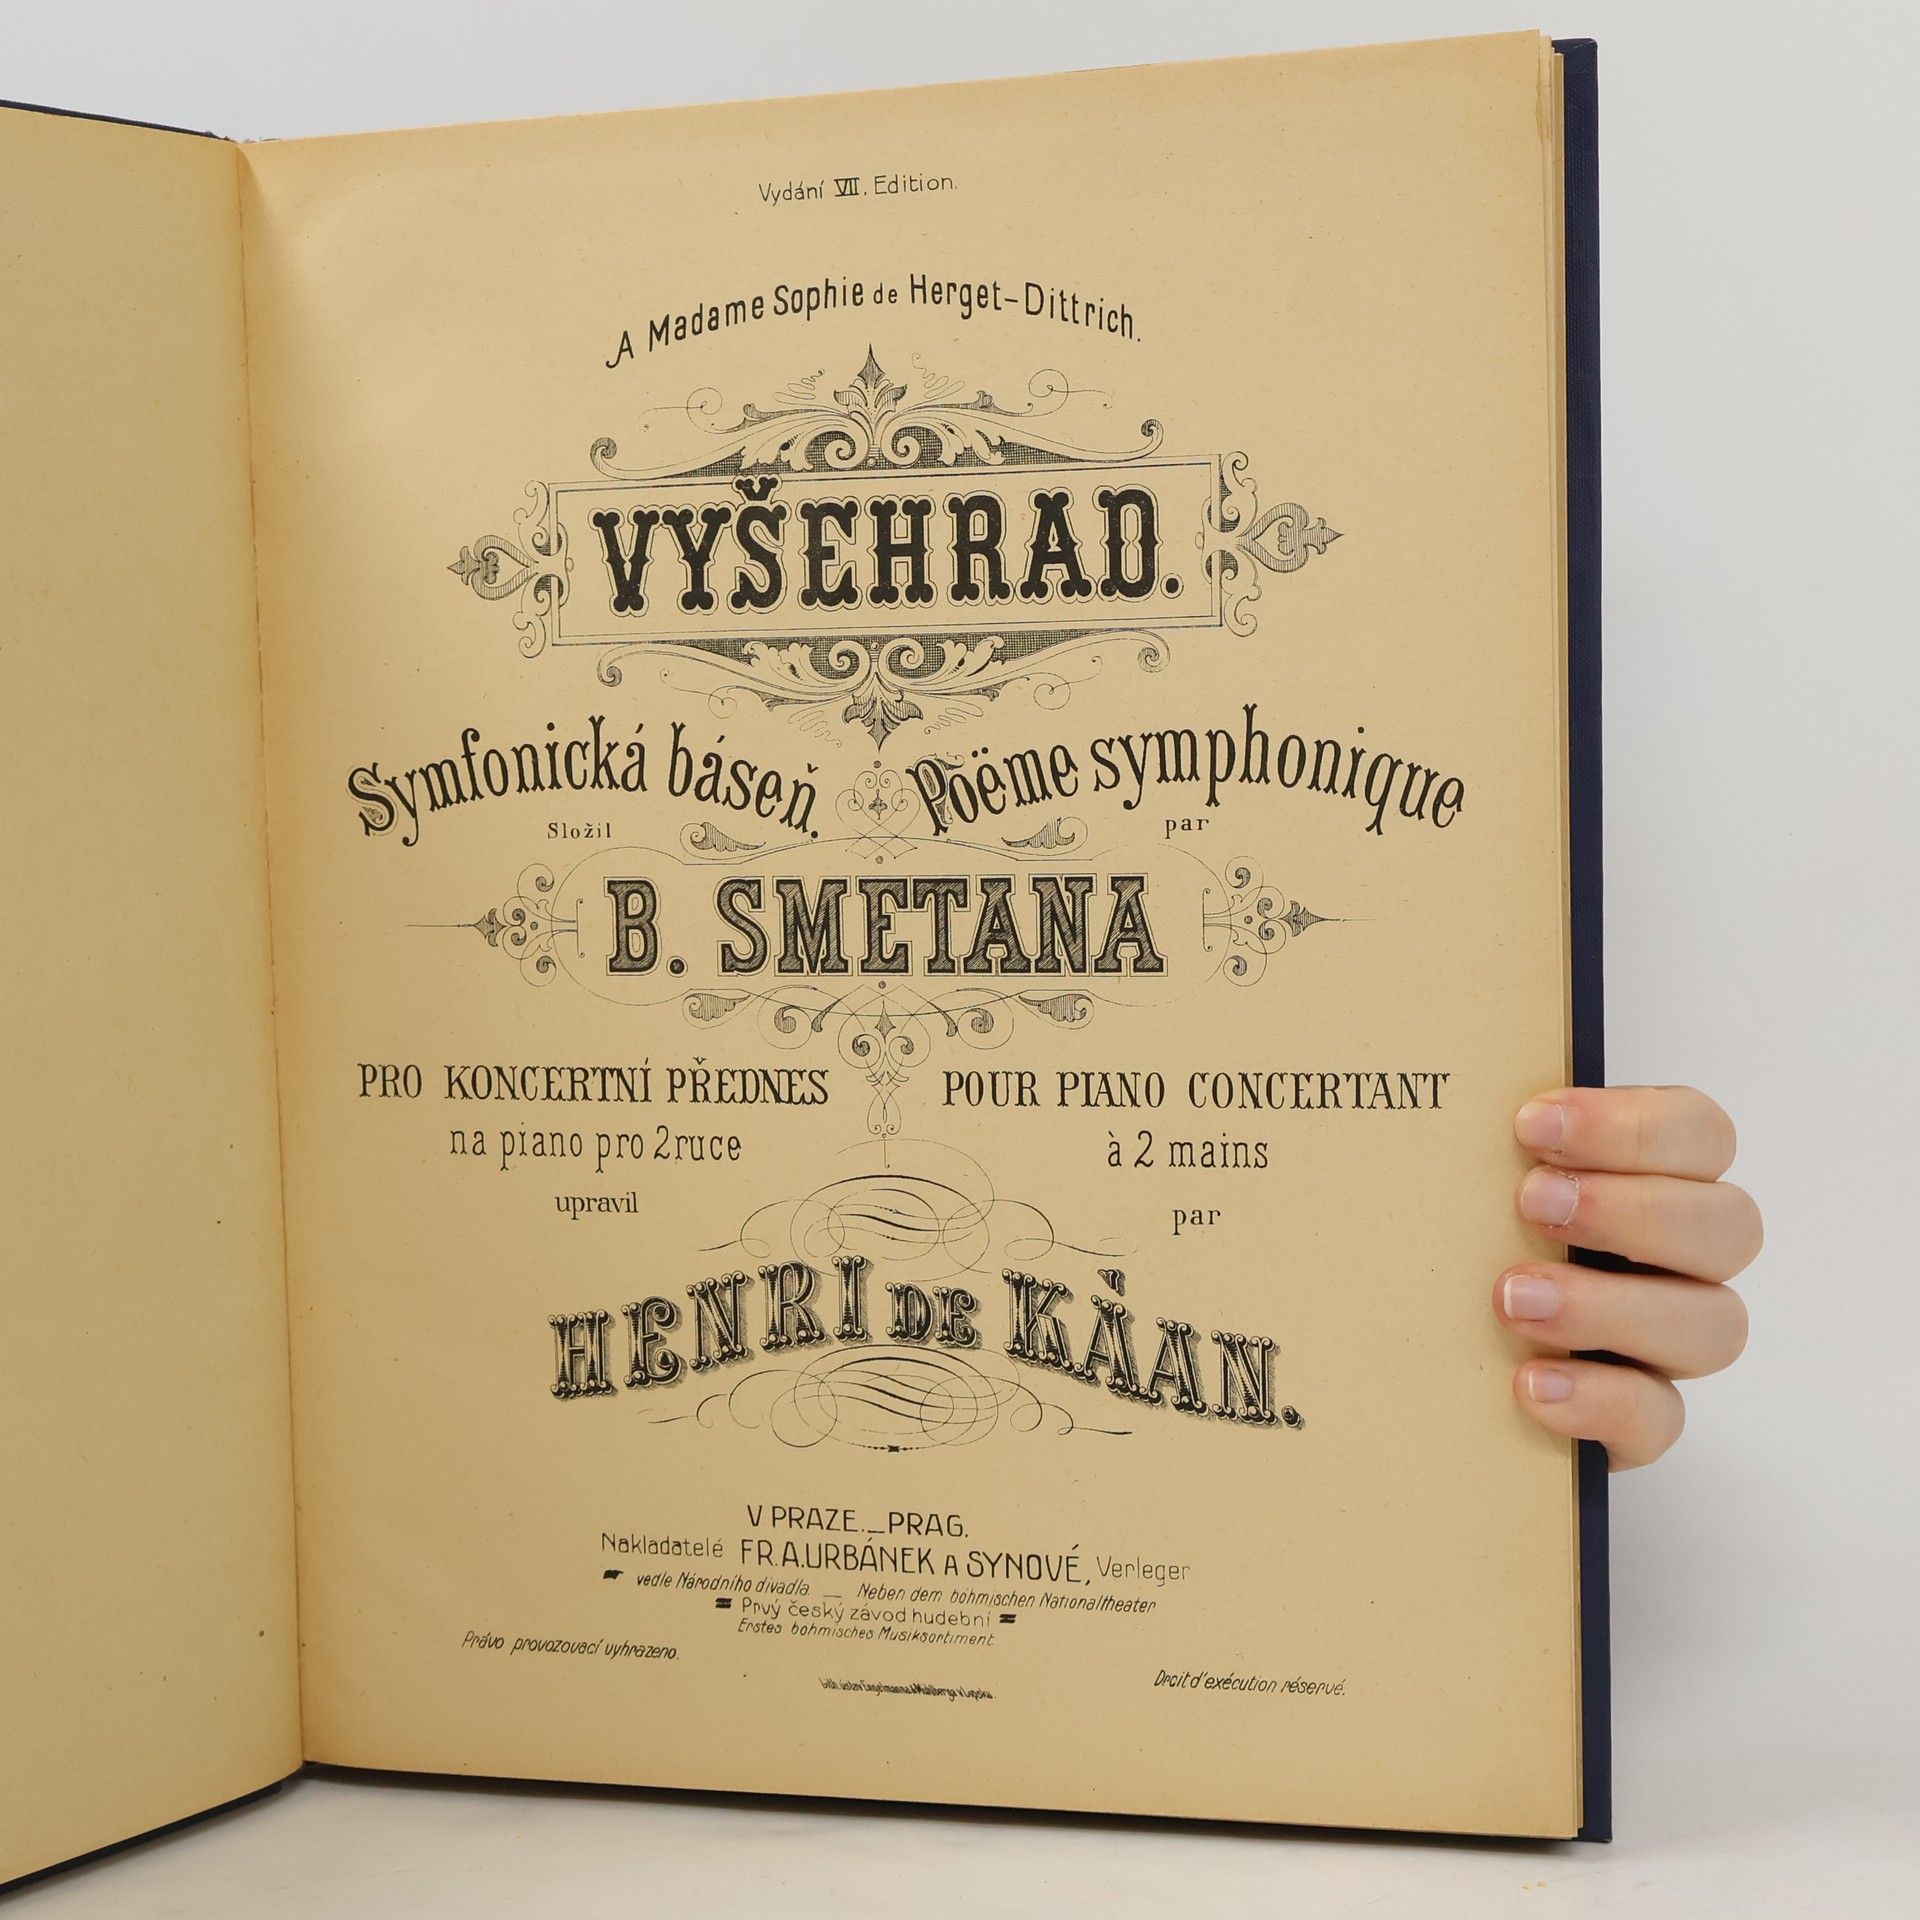 Vydání VII. Edition.
A Madame Sophie de Herget-Dittrich.
VYŠEHRAD.
Symfonická báseň. Poëme symphonique
Složil par
B. SMETANA
PRO KONCERTNÍ PŘEDNES POUR PIANO CONCERTANT
na piano pro 2 ruce à 2 mains
upravil par
HENRI DE KÀAN.
V PRAZE._PRAG.
Nakladatelé FR. A. URBÁNEK A SYNOVÉ, Verleger
vedle Národního divadla. — Neben dem böhmischen Nationaltheater
Prvý český závod hudební
Erstes böhmisches Musiksortiment.
Právo provozovací vyhrazeno. Droit d'exécution réservé.
Lith. ústav Engelmanna & Mühlberga v Lipsku.